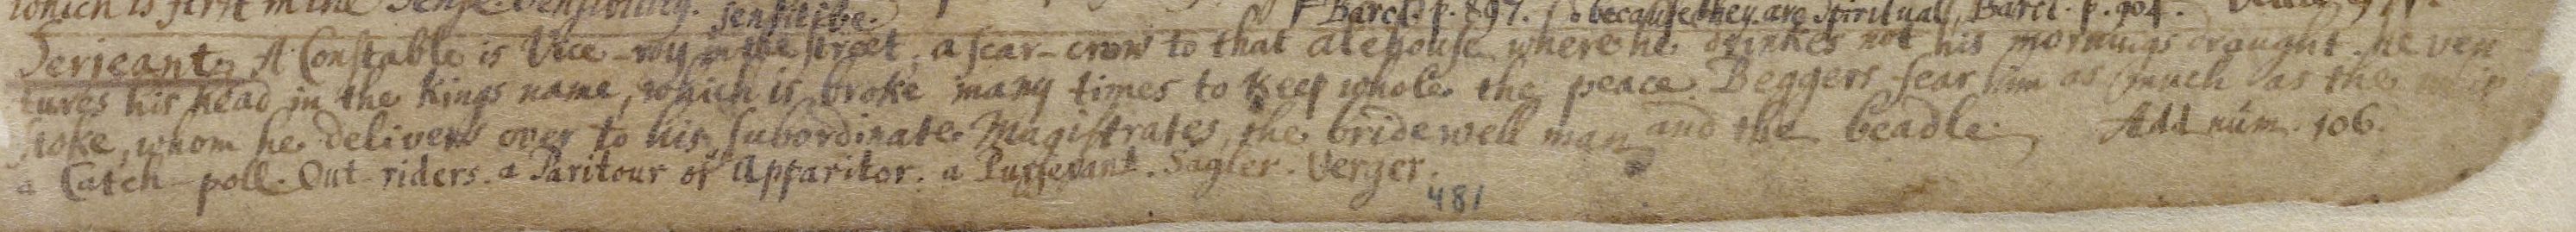 which is first in the Sense. Sensibility. sensitive. Barcl. p. 897. because they are Spirituall, Barcl. p. 904.
Serjeant, A Constable is Vice-roy in the street, a scar-crow to that alehouse where he drinkes not his mornings draught. he ven
tures his head in the Kings name, which is broke many times to keep whole the peace. Beggers fear him as much as the
stoke, whom he delivers over to his subordinate Magistrates, the bridewell man and the beadle. Add num. 106.
a Catch-poll. Out-riders. a Paritour or Apparitor. a Pursevant. Sagler. Verger.
481